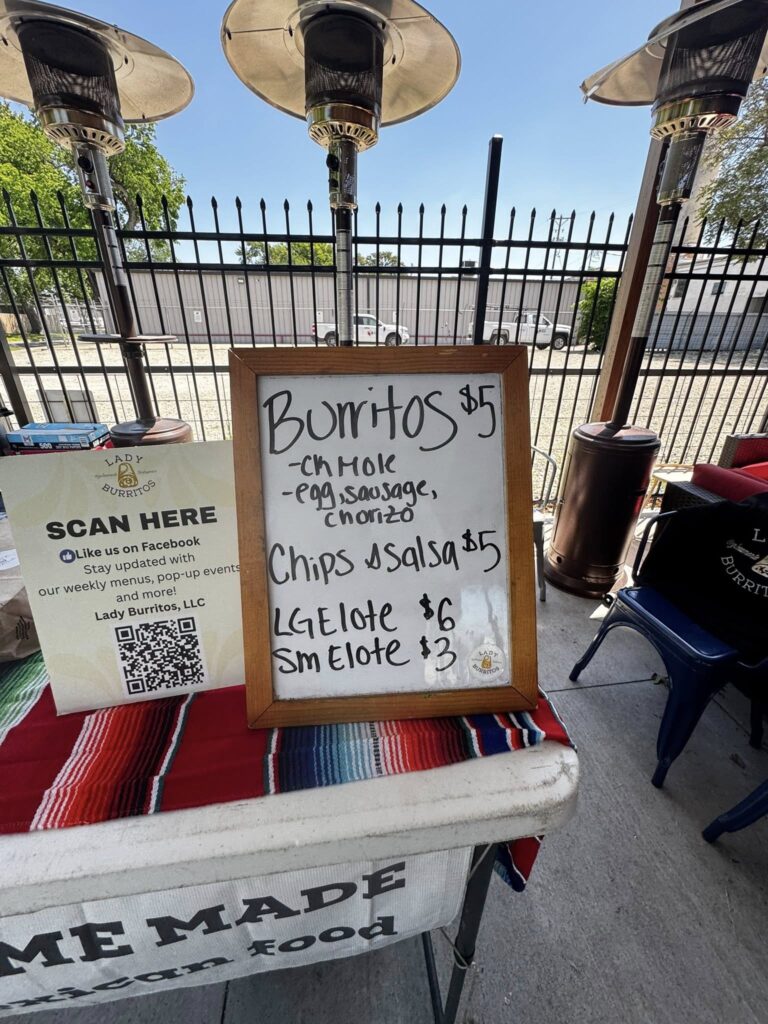 Burritos $5
-Ch Mole
-egg, sausage,
chorizo
Chips & Salsa $5
LG Elote $6
Sm Elote $3
LADY
BURRITOS
LADY
BURRITOS
SCAN HERE
Like us on Facebook
Stay updated with
our weekly menus, pop-up events
and more!
Lady Burritos, LLC
500
ME MADE
xican food
L
BURRIT